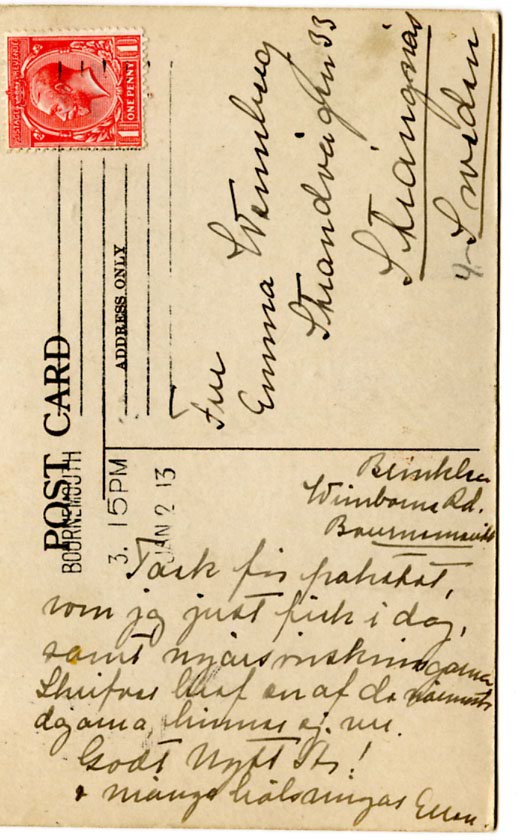 POST CARD
ADDRESS ONLY
BOURNEMOUTH
3. 15PM
JAN 2 13
POSTAGE REVENUE
ONE PENNY
1 1
Fru
Emma
Strandvägen 33
Strängnäs
Sweden
4
Wimborne Rd.
Bournemouth
Tack för paketet,
som jag just fick i dag,
samt nyårsönskningarna
Skrifver bref en af de närmaste
dagarna, hinner ej nu.
Godt Nytt År!
många hälsningar Ellen.